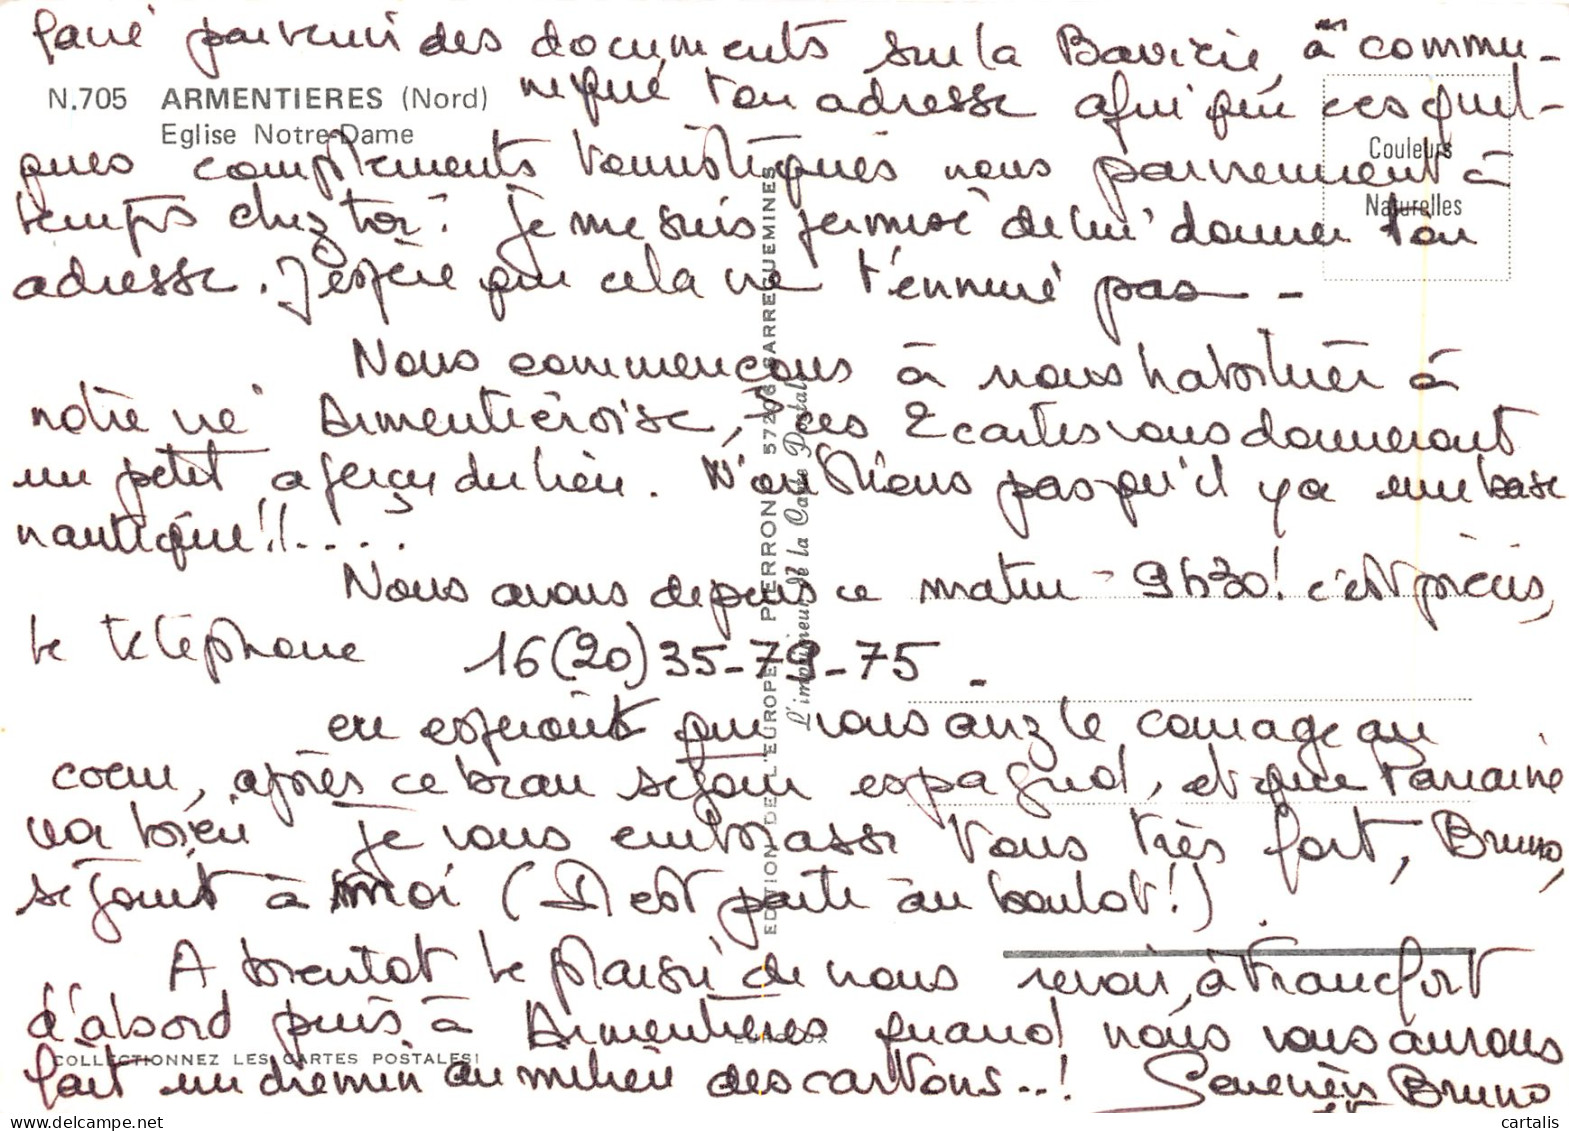 faire parvenir des documents sur la Bavière, a commu-
N.705 ARMENTIERES (Nord)
niqué ton adresse afin que ces quel-
Eglise Notre-Dame
Couleurs
Naturelles
ques compléments touristiques nous parviennent à
temps chez toi. Je me suis permise de lui donner ton
adresse. J'espère que cela ne t'ennuie pas -
Nous commençons à nous habituer à
notre vie Armentièroise, ces 2 cartes vous donneront
un petit aperçu du lieu. N'oublions pas qu'il y a une base
nautique!!....
Nous avons depuis ce matin - 9h30! c'est précis,
le téléphone 16(20)35-79-75 -
en espérant que vous avez le courage au
coeur, après ce beau séjour espagnol, et que Parraine
va bien je vous embrasse tous très fort, Bruno,
se joint à moi (Il est parti au boulot!).
A bientôt le plaisir de nous revoir, à Francfort
d'abord puis à Armentières quand nous vous aurons
EUROLUX
COLLECTIONNEZ LES CARTES POSTALES!
fait un chemin au milieu des cartons..! Bruno
EDITION DE L'EUROPE PIERRON 57206 SARREGUEMINES
L'imprimeur de la Carte Postale
cartalis
delcampe.net